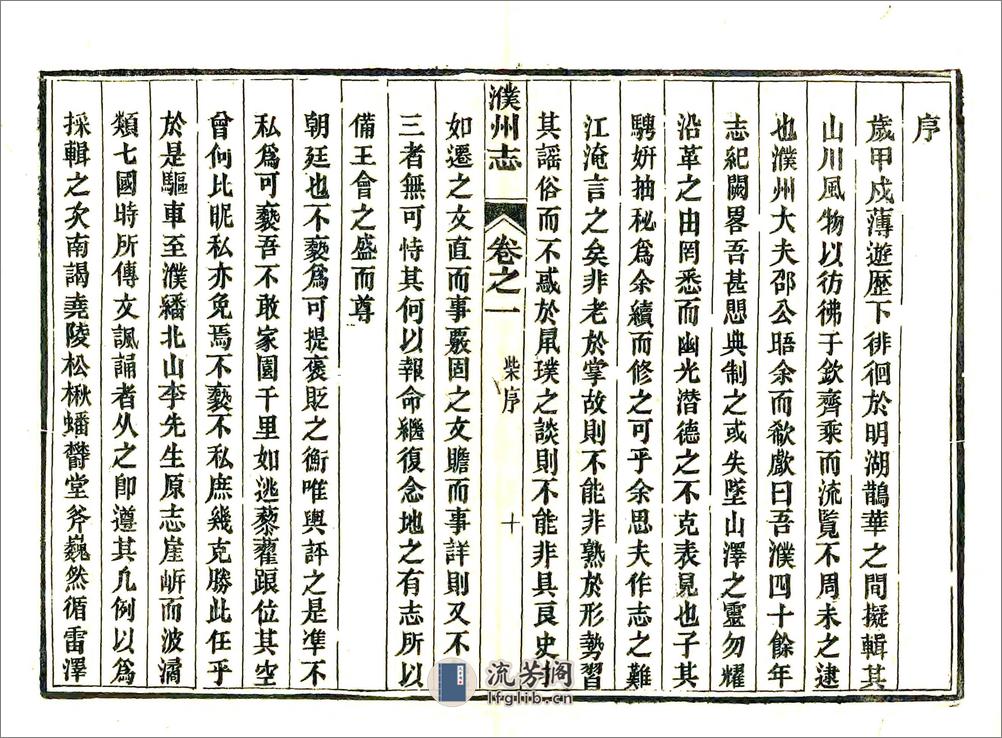 序
歲甲戍薄遊歷下徘徊於明湖鵲華之間擬輯其
山川風物以彷彿于欽齊乘而流覽不周未之逮
也濮州大夫邵公晤余而欷歔曰吾濮四十餘年
志紀闕畧吾甚思典制之或失墜山澤之靈勿耀
沿革之由罔悉而幽光潛德之不克表見也子其
騁妍抽秘爲余續而修之可乎余思夫作志之難
江淹言之矣非老於掌故則不能非熟於形勢習
其謡俗而不惑於鼠璞之談則不能非具良史才
濮州志 卷之一 柴序 十
如遷之文直而事覈固之文贍而事詳則又不能
三者無可恃其何以報命繼復念地之有志所以
備王會之盛而尊
朝廷也不褻爲可提褒貶之衡唯輿評之是準不
私爲可褻吾不敢家園千里如逃藜藿踉位其空
曾何比昵私亦免焉不褻不私庶幾克勝此任乎
於是驅車至濮繙北山李先生原志崖嶄而波潏
類七國時所傳文諷誦者久之卽遵其凡例以爲
採輯之次南謁堯陵松楸蟠鬱堂斧巍然循雷澤
流芳阁
lfglib.cn